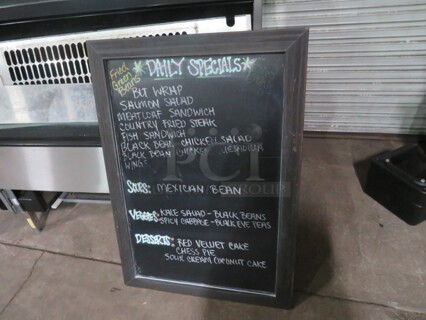 Fried Green Beans
DAILY SPECIALS
BLT WRAP
SALMON SALAD
MEATLOAF SANDWICH
COUNTRY FRIED STEAK
FISH SANDWICH
BLACK BEAN CHICKEN SALAD
BLACK BEAN CHICKEN QUESADILLA
WINGS
PCI
GROUP
SOUPS: MEXICAN BEAN
VEGGIES: KALE SALAD - BLACK BEANS
SPICY CABBAGE - BLACK EYE PEAS
DESSERTS: RED VELVET CAKE
CHESS PIE
SOUR CREAM COCONUT CAKE